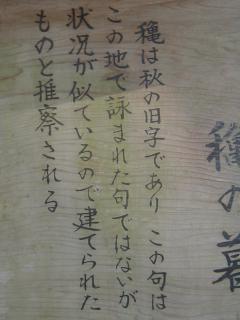 穐の暮
穐は秋の旧字であり この句は
この地で詠まれた句ではないが
状況が似ているので建てられた
ものと推察される